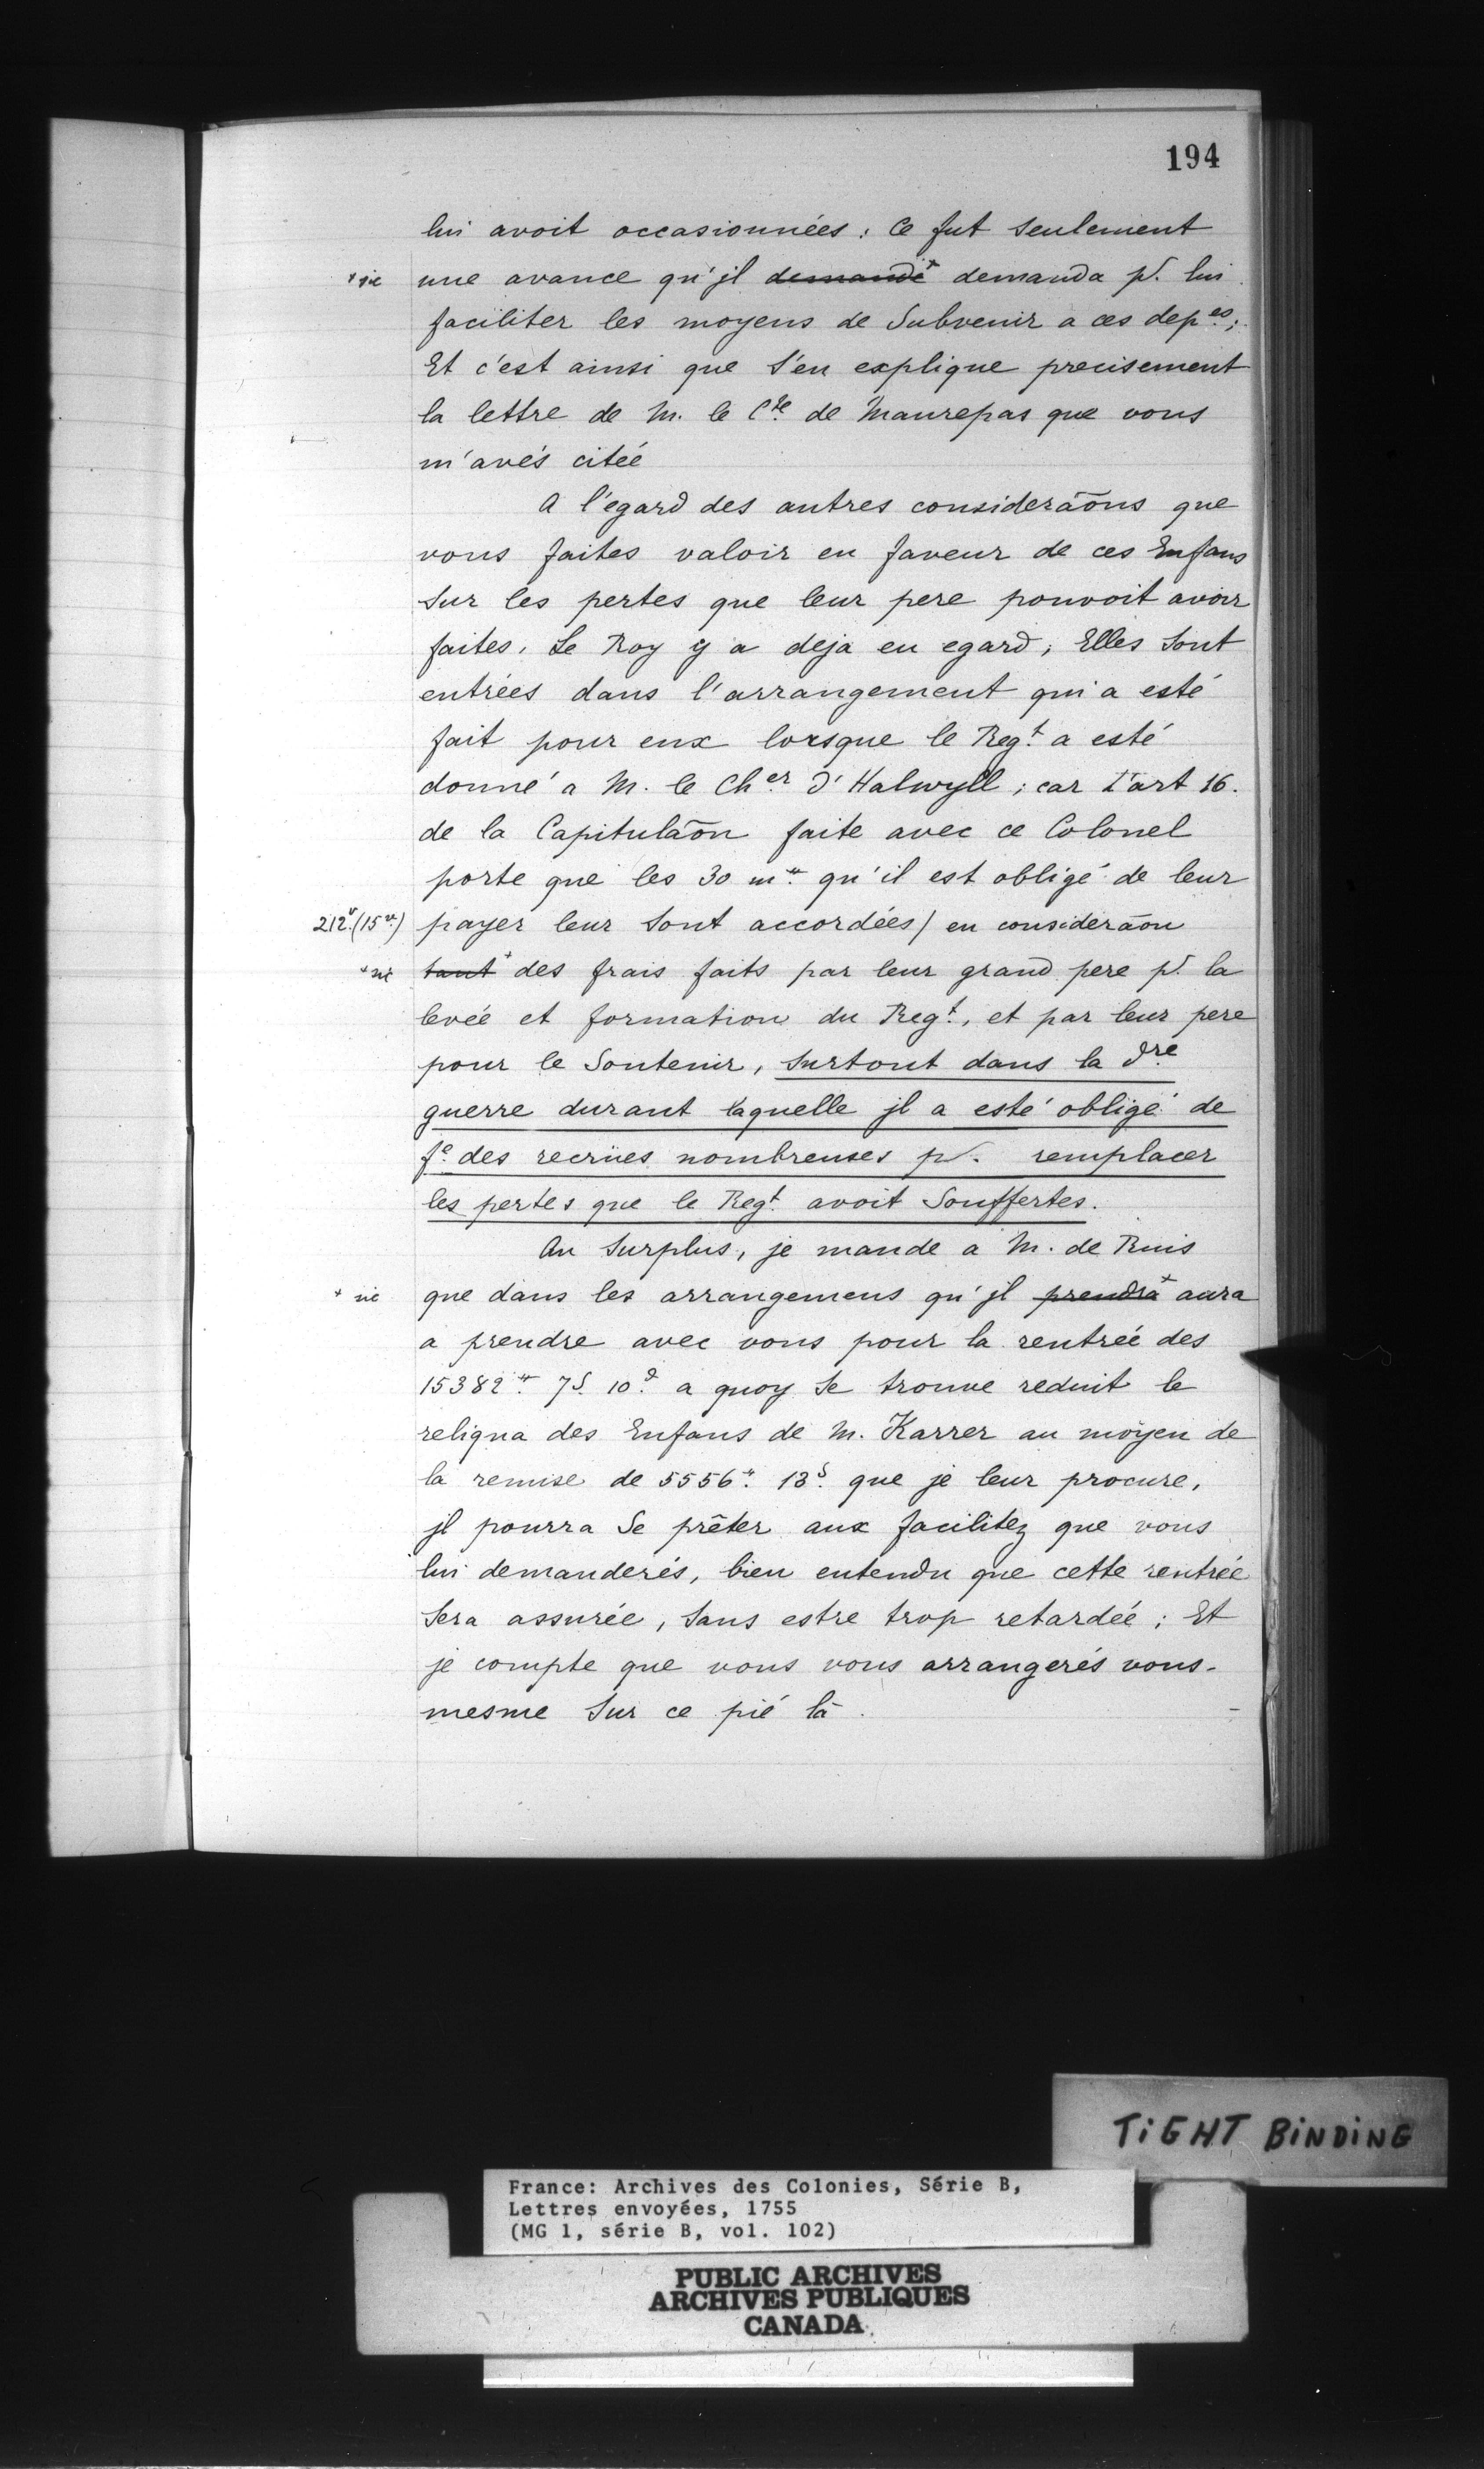 194
lui avoit occasionnées : Ce fut Seulement
+ sic une avance qu'jl demandé+ demanda pr. lui
faciliter les moyens de Subvenir a ces depes;
Et c'est ainsi que S'en explique precisement
la lettre de M. le Cte de Maurepas que vous
m'avés citée
A l'egard des autres considerãõns que
vous faites valoir en faveur de ces Enfans
Sur les pertes que leur pere pouvoit avoir
faites, Le Roy y a deja eu egard, Elles Sont
entrées dans l'arrangement qui a esté
fait pour eux lorsque le Regt. a esté
donné a M. le Cher d'Halwyll ; car l'art 16.
de la Capitulãõn faite avec ce Colonel
porte que les 30 m₶. qu'il est obligé de leur
212v. (15₶) payer leur Sont accordées / en considerãõn
+ sic tant+ des frais faits par leur grand pere pr. la
levée et formation du Regt., et par leur pere
pour le Soutenir, Surtout dans la dre
guerre durant laquelle jl a esté obligé de
fe. des recrües nombreuses pr. remplacer
les pertes que le Regt. avoit Souffertes.
Au Surplus, je mande a M. de Ruis
+ sic que dans les arrangemens qu'jl prendra+ aura
a prendre avec vous pour la rentrée des
15382₶. 7s. 10d. a quoy Se trouve reduit le
religna des Enfans de M. Karrer au moÿen de
la remise de 5556₶. 13s. que je leur procure,
jl pourra Se prêter aux facilitez que vous
lui demanderés, bien entendu que cette rentrée
Sera assurée, Sans estre trop retardée ; Et
je compte que vous vous arrangerés vous-
mesme Sur ce pié là.
TiGHT BiNDiNG
France: Archives des Colonies, Série B,
Lettres envoyées, 1755
(MG 1, série B, vol. 102)
PUBLIC ARCHIVES
ARCHIVES PUBLIQUES
CANADA